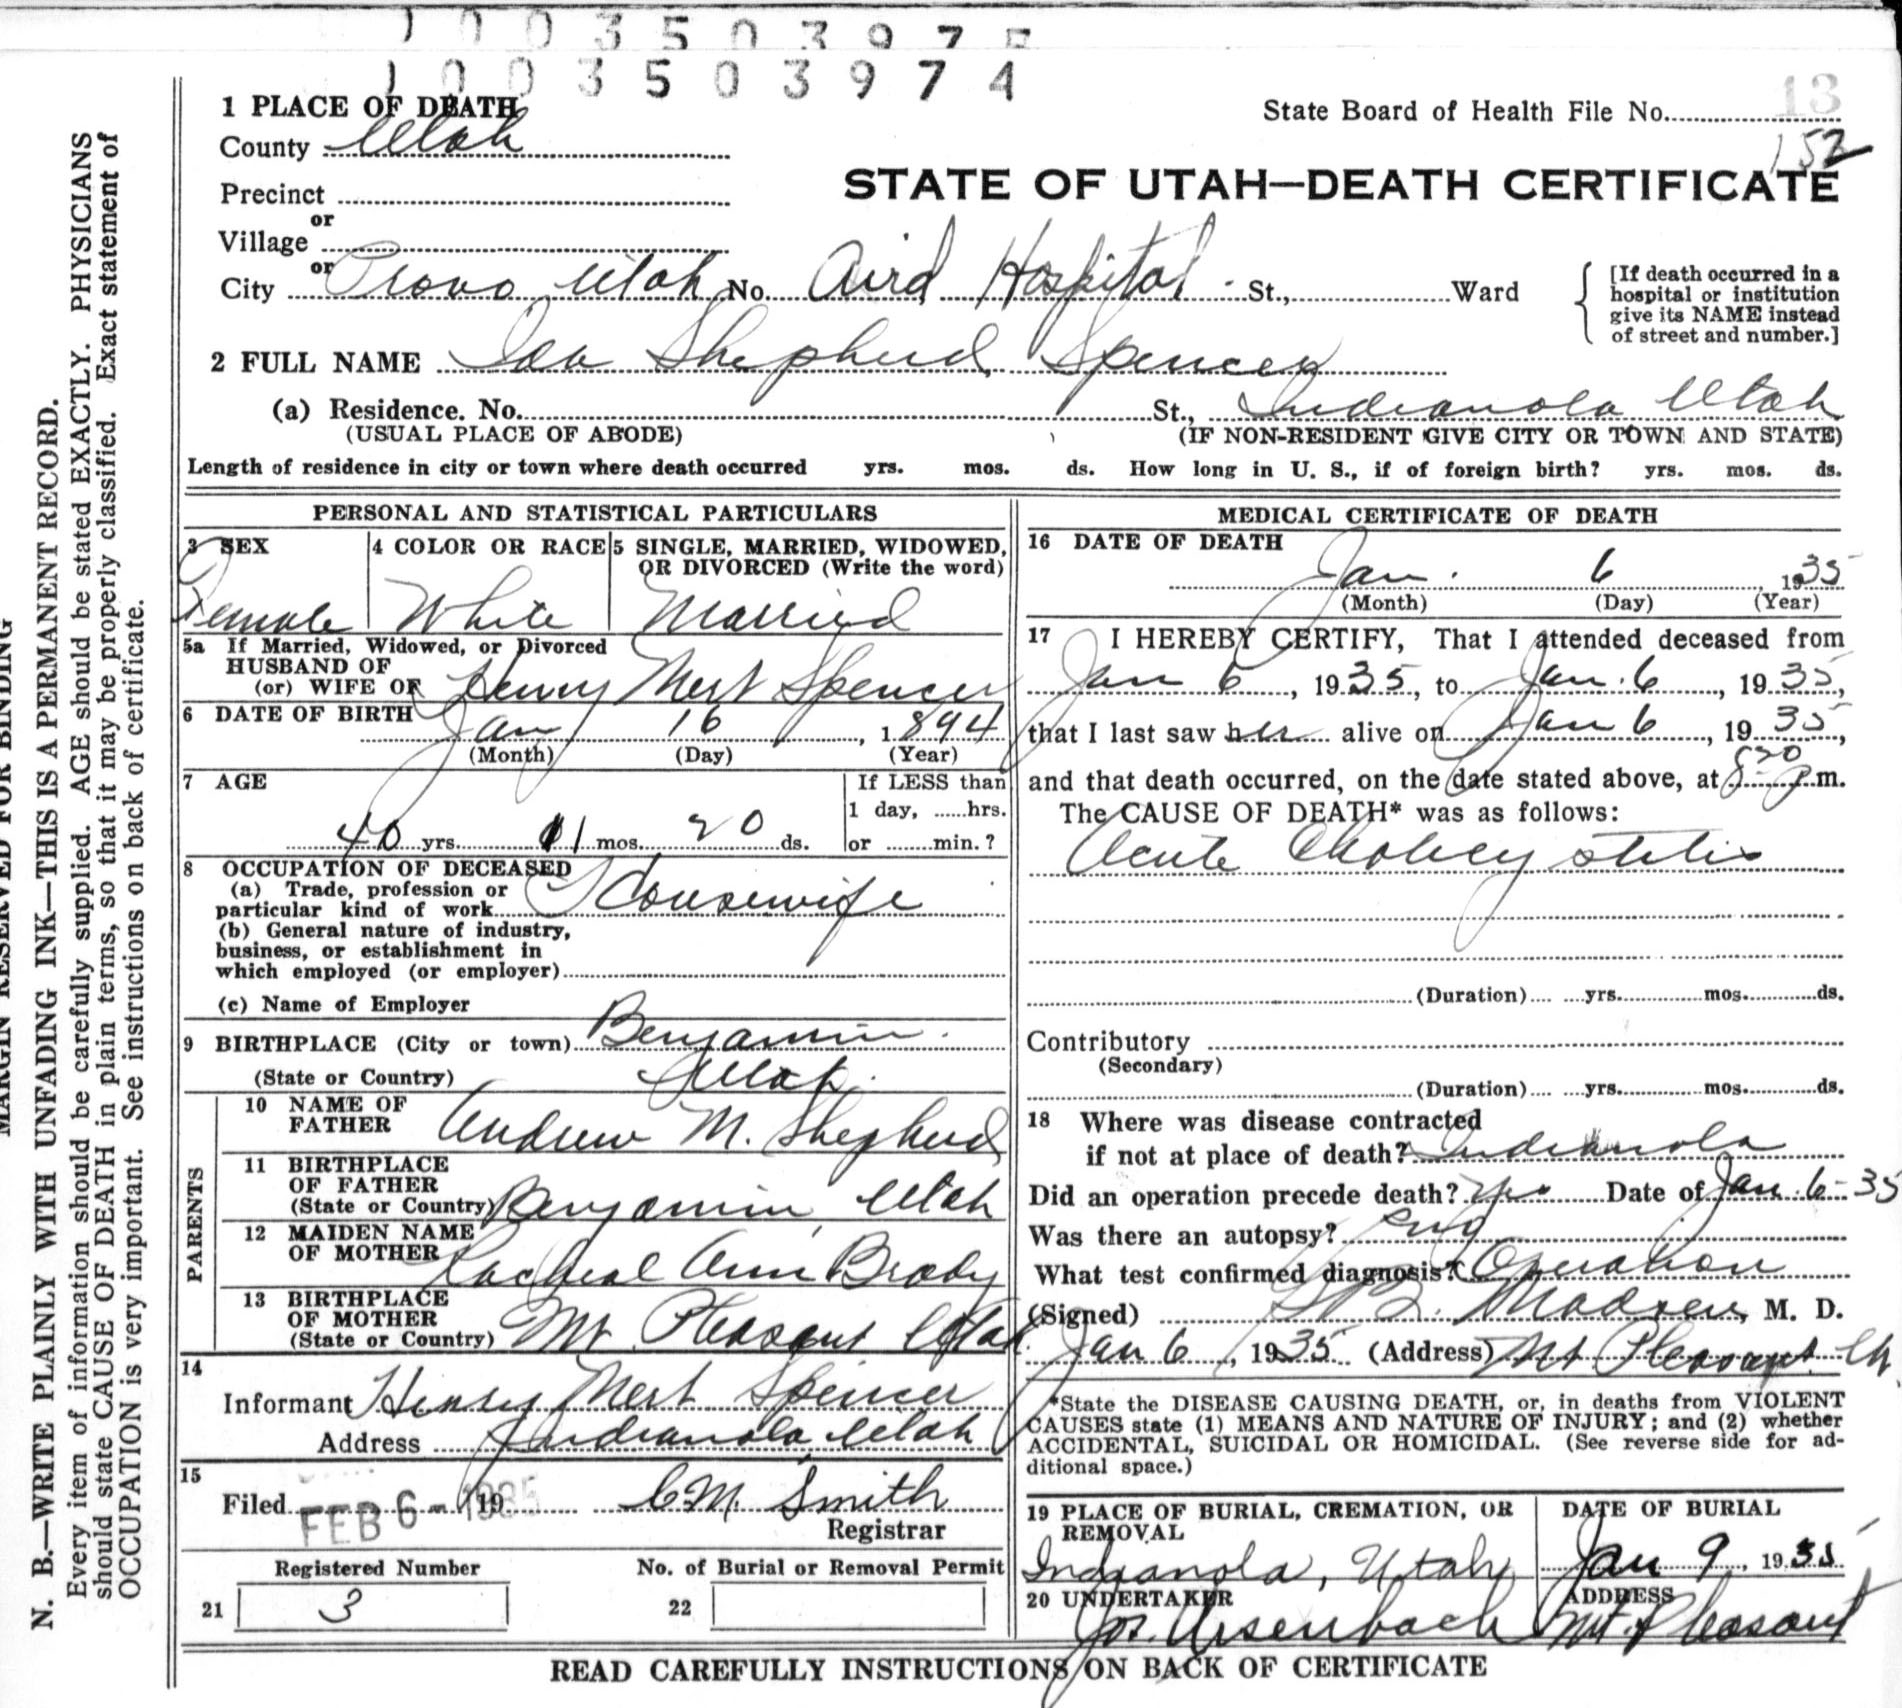 1 0 0 3 5 0 3 9 7
1 0 0 3 5 0 3 9 7 4
13
152
1 PLACE OF DEATH
State Board of Health File No.
County Utah
Precinct
STATE OF UTAH—DEATH CERTIFICATE
or
Village
or
City Provo Utah No. Aird Hospital St., Ward
[If death occurred in a
hospital or institution
give its NAME instead
of street and number.]
2 FULL NAME Ida Shepherd Spencer
(a) Residence. No. St., Indianola Utah
(USUAL PLACE OF ABODE) (IF NON-RESIDENT GIVE CITY OR TOWN AND STATE)
Length of residence in city or town where death occurred yrs. mos. ds. How long in U. S., if of foreign birth? yrs. mos. ds.
PERSONAL AND STATISTICAL PARTICULARS
3 SEX
Female
4 COLOR OR RACE
White
5 SINGLE, MARRIED, WIDOWED,
OR DIVORCED (Write the word)
Married
5a If Married, Widowed, or Divorced
HUSBAND OF
(or) WIFE OF Henry Mert Spencer
6 DATE OF BIRTH Jan 16, 1894
(Month) (Day) (Year)
7 AGE
If LESS than
1 day, ......hrs.
40 yrs. 11 mos. 20 ds. or ........min.?
8 OCCUPATION OF DECEASED
(a) Trade, profession or
particular kind of work Housewife
(b) General nature of industry,
business, or establishment in
which employed (or employer)
(c) Name of Employer
9 BIRTHPLACE (City or town) Benjamin
(State or Country) Utah
PARENTS
10 NAME OF
FATHER Andrew M. Shepherd
11 BIRTHPLACE
OF FATHER
(State or Country) Benjamin, Utah
12 MAIDEN NAME
OF MOTHER Racheal Ann Brady
13 BIRTHPLACE
OF MOTHER
(State or Country) Mt Pleasant Utah
14
Informant Henry Mert Spencer
Address Indianola, Utah
15
Filed FEB 6- 1935 19 C M. Smith
Registrar
Registered Number No. of Burial or Removal Permit
21 3 22
MEDICAL CERTIFICATE OF DEATH
16 DATE OF DEATH
Jan. 6 1935
(Month) (Day) (Year)
17 I HEREBY CERTIFY, That I attended deceased from
Jan 6, 1935, to Jan. 6, 1935,
that I last saw her alive on Jan 6, 1935,
and that death occurred, on the date stated above, at 8 30 P.m.
The CAUSE OF DEATH* was as follows:
Acute Cholecystitis
(Duration) yrs. mos. ds.
Contributory
(Secondary)
(Duration) yrs. mos. ds.
18 Where was disease contracted
if not at place of death? Indianola
Did an operation precede death? Yes Date of Jan. 6-35
Was there an autopsy? no
What test confirmed diagnosis? Operation
(Signed) Madsen, M. D.
Jan 6, 1935 (Address) Mt Pleasant Ut.
*State the DISEASE CAUSING DEATH, or, in deaths from VIOLENT
CAUSES state (1) MEANS AND NATURE OF INJURY; and (2) whether
ACCIDENTAL, SUICIDAL OR HOMICIDAL. (See reverse side for ad-
ditional space.)
19 PLACE OF BURIAL, CREMATION, OR
REMOVAL
Indianola, Utah
DATE OF BURIAL
Jan 9, 1935
20 UNDERTAKER
Jos. Ursenbach
ADDRESS
Mt. Pleasant
READ CAREFULLY INSTRUCTIONS ON BACK OF CERTIFICATE
MARGIN RESERVED FOR BINDING
N. B.—WRITE PLAINLY WITH UNFADING INK—THIS IS A PERMANENT RECORD.
Every item of information should be carefully supplied. AGE should be stated EXACTLY. PHYSICIANS
should state CAUSE OF DEATH in plain terms, so that it may be properly classified. Exact statement of
OCCUPATION is very important. See instructions on back of certificate.